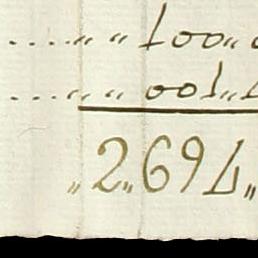 ....„ „ 100„
....„ „ 001„
„2„694„